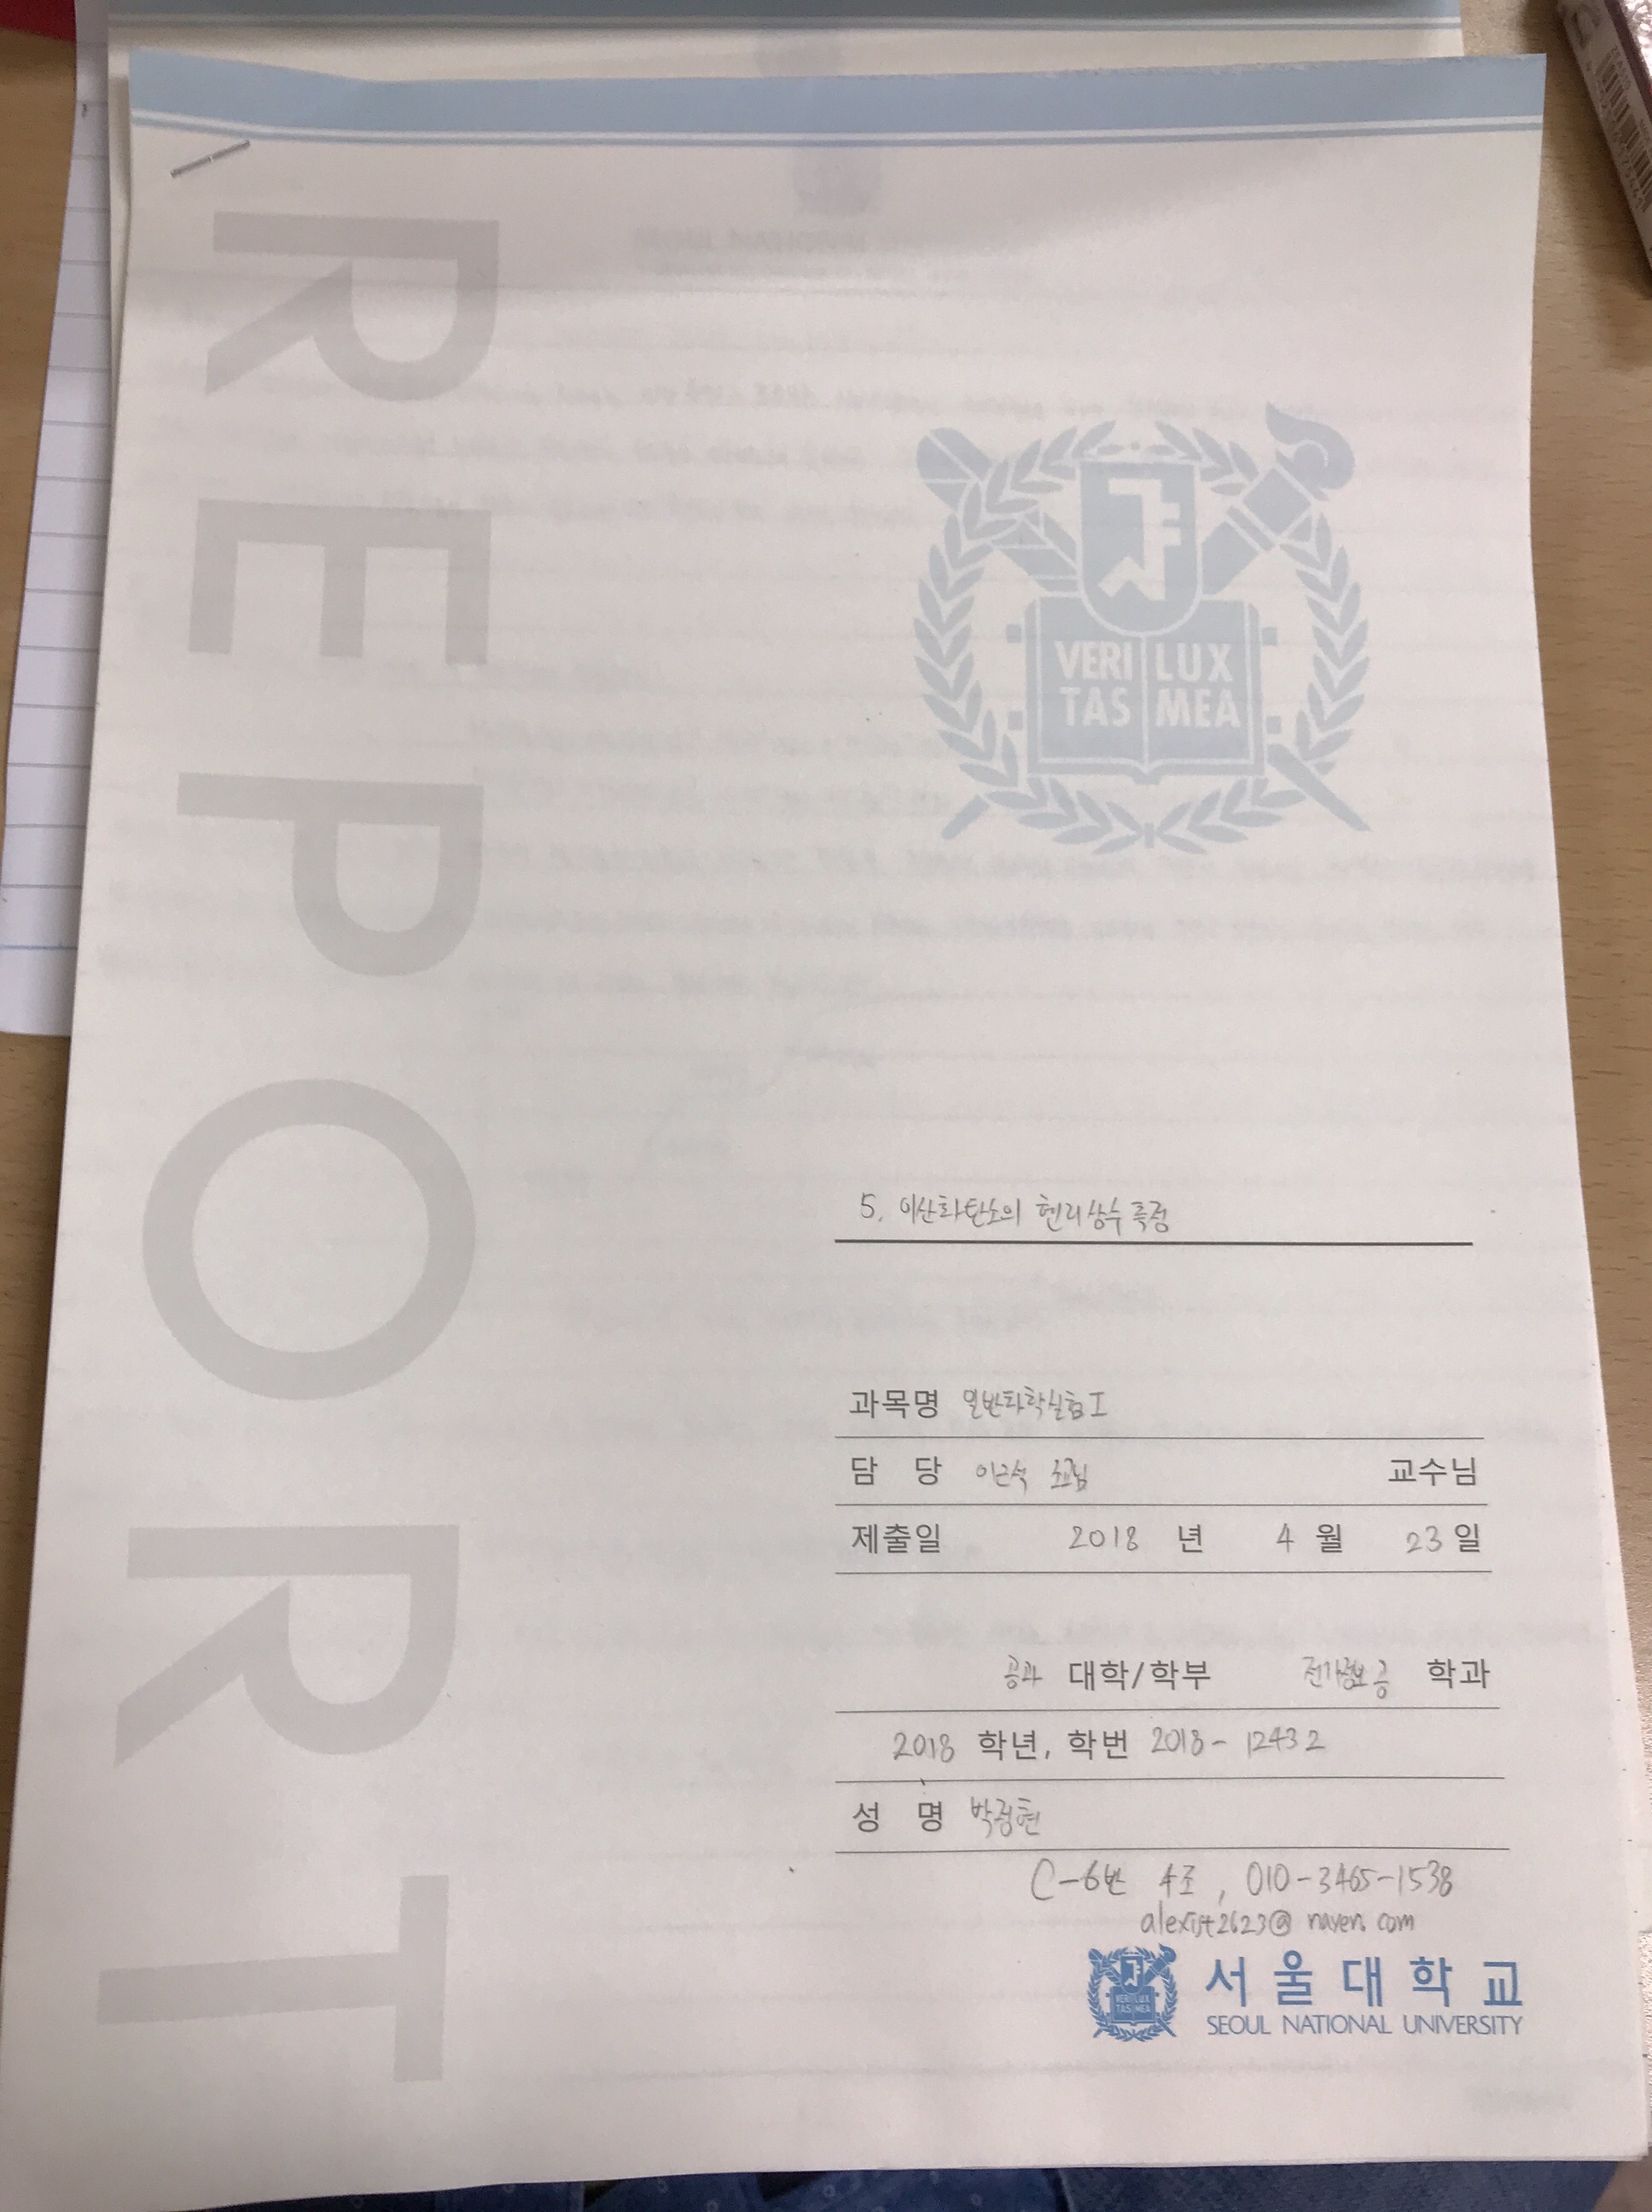 REPORT
VERI LUX
TAS MEA
5. 이산화탄소의 헨리상수 측정
과목명 일반화학실험 I
담 당 이근석 조교님 교수님
제출일 2018 년 4 월 23 일
공과 대학/학부 전기정보공 학과
2018 학년, 학번 2018-12432
성 명 박정현
C-6반 4조, 010-3465-1538
@naver.com
VERI LUX
TAS MEA
서울대학교
SEOUL NATIONAL UNIVERSITY